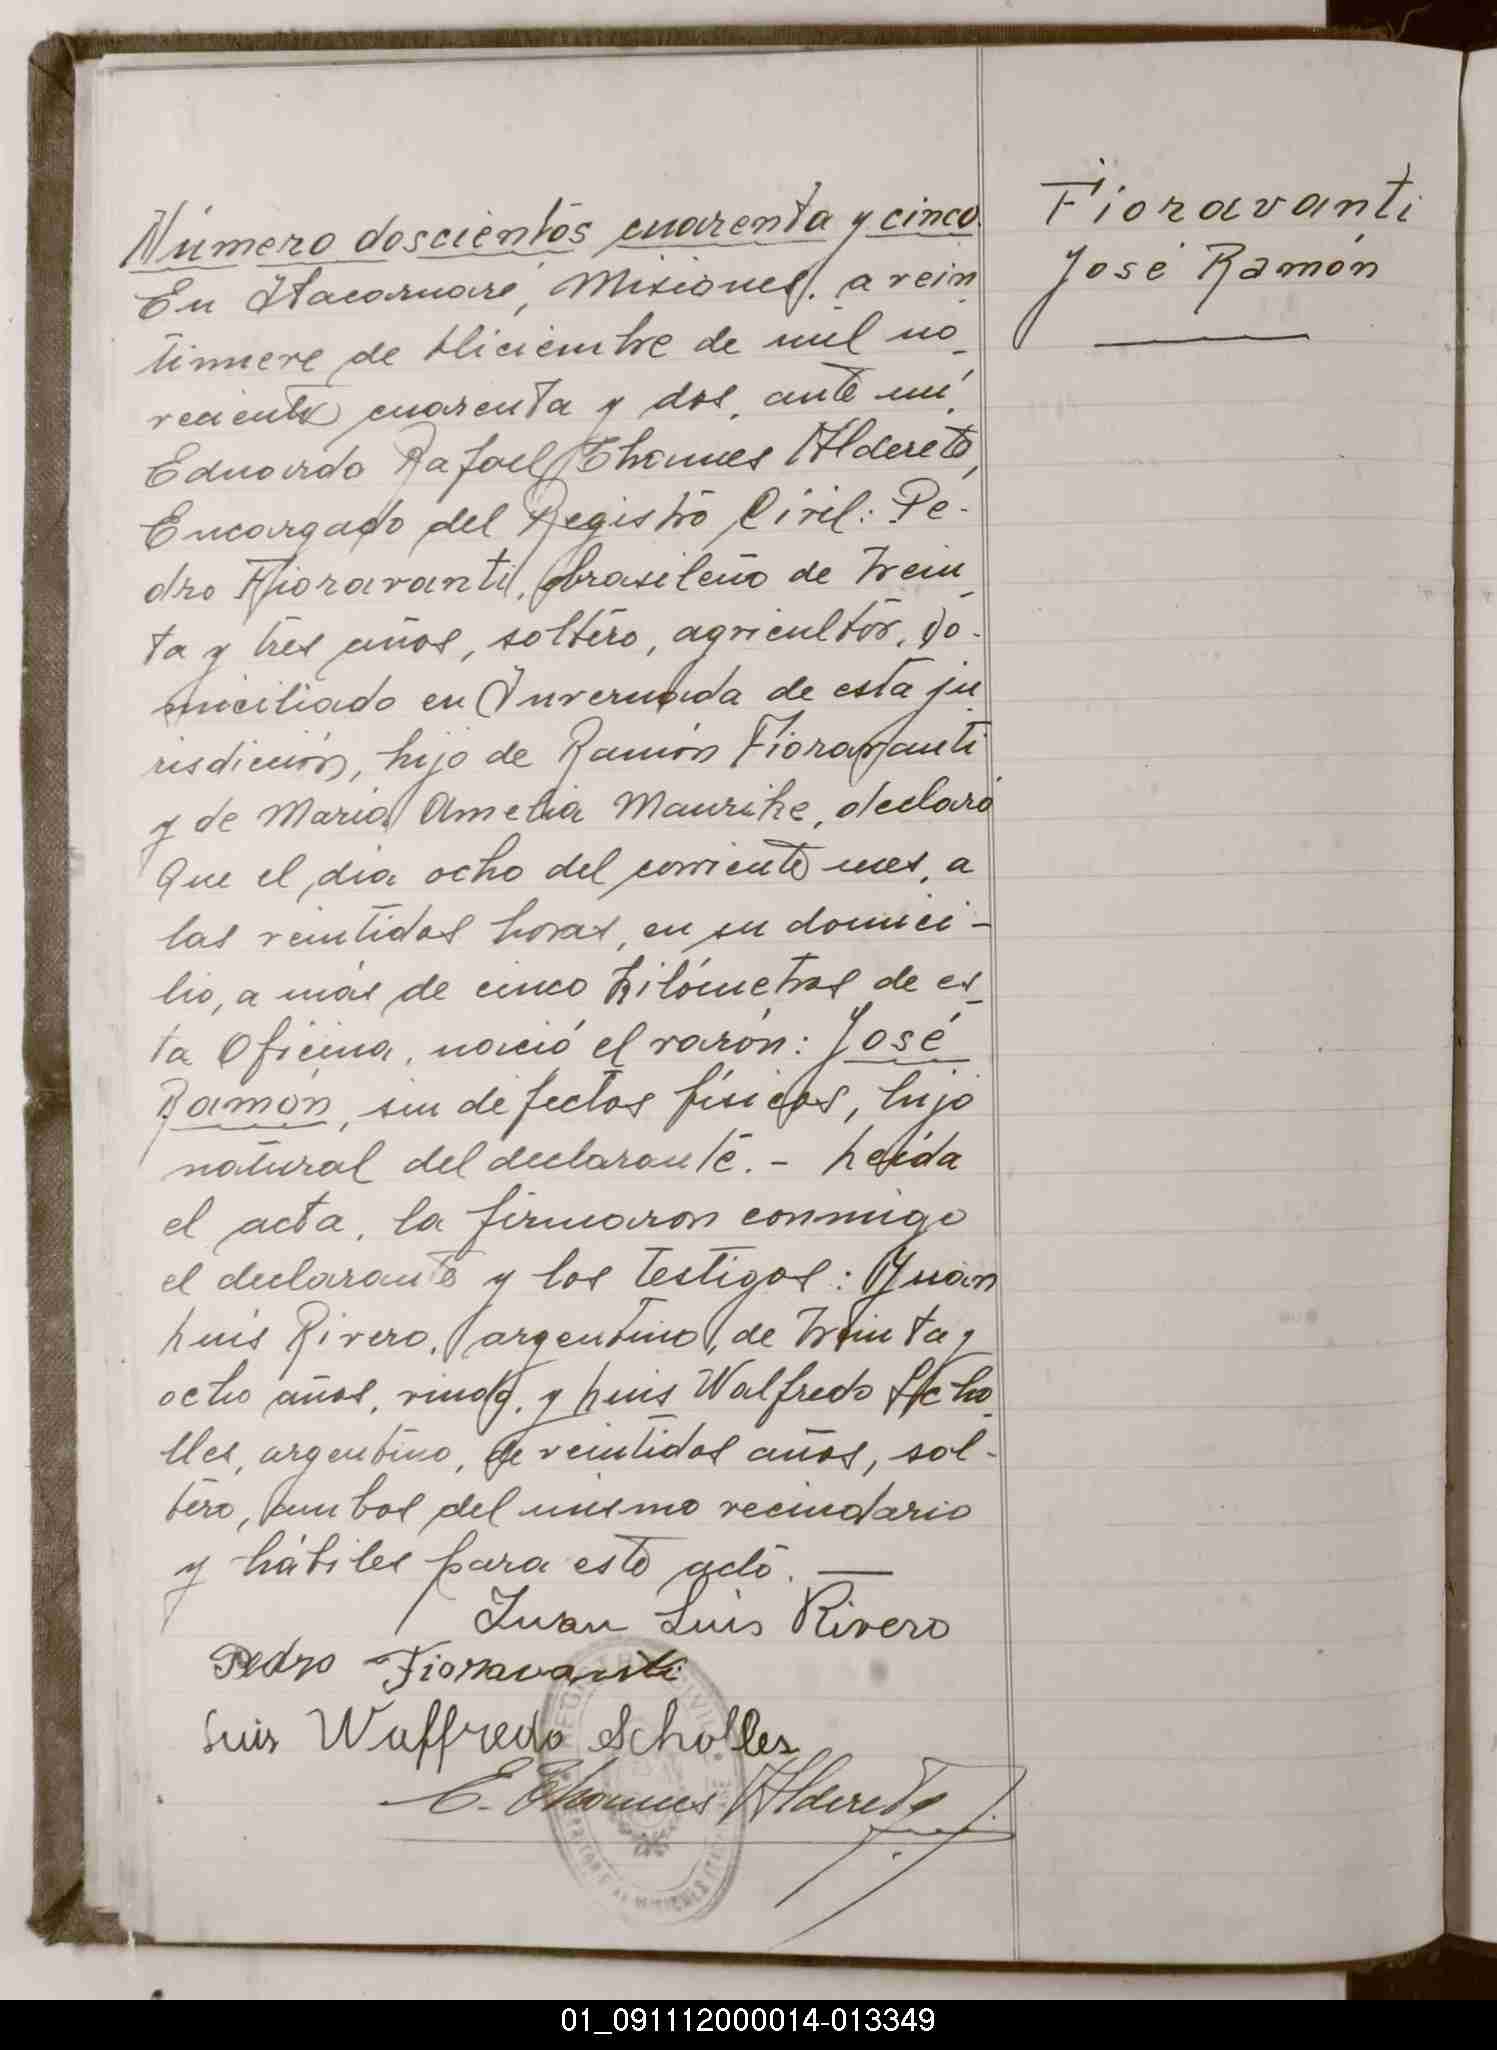 Número doscientos cuarenta y cinco.
En Itacaruaré, Misiones, a vein
tinueve de Diciembre de mil no_
vecientos cuarenta y dos, ante mí,
Eduardo Rafael Thomes Alderete,
Encargado del Registro Civil: Pe-
dro Fioravanti, brasileño de trein_
ta y tres años, soltero, agricultor, do-
miciliado en Invernada de esta ju_
risdicción, hijo de Ramón Fioravanti
y de María Amelia declaró
Que el día ocho del corriente mes, a
las veintidos horas, en su domici-
lio, a más de cinco kilómetros de es_
ta Oficina, nació el varón: José
Ramón, sin defectos físicos, hijo
natural del declarante.- Leída
el acta, la firmaron conmigo
el declarante y los testigos: Juan
Luis Rivero, argentino, de treinta y
ocho años, viudo, y Luis Walfredo Scho_
lles, argentino, de veintidos años, sol-
tero, ambos del mismo vecindario
y hábiles para este acto. —
Juan Luis Rivero
Pedro Fioravanti
Luis Walfredo Scholles
E. Thomes Alderete
Fioravanti
José Ramón
01_091112000014-013349